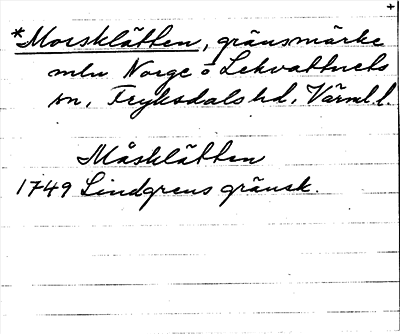 *Morsklätten, gränsmärke
mln Norge o Lekvattnets
sn, Fryksdals hd, Värml.l.
Måsklätten
1749 Lindgrens gränsk.